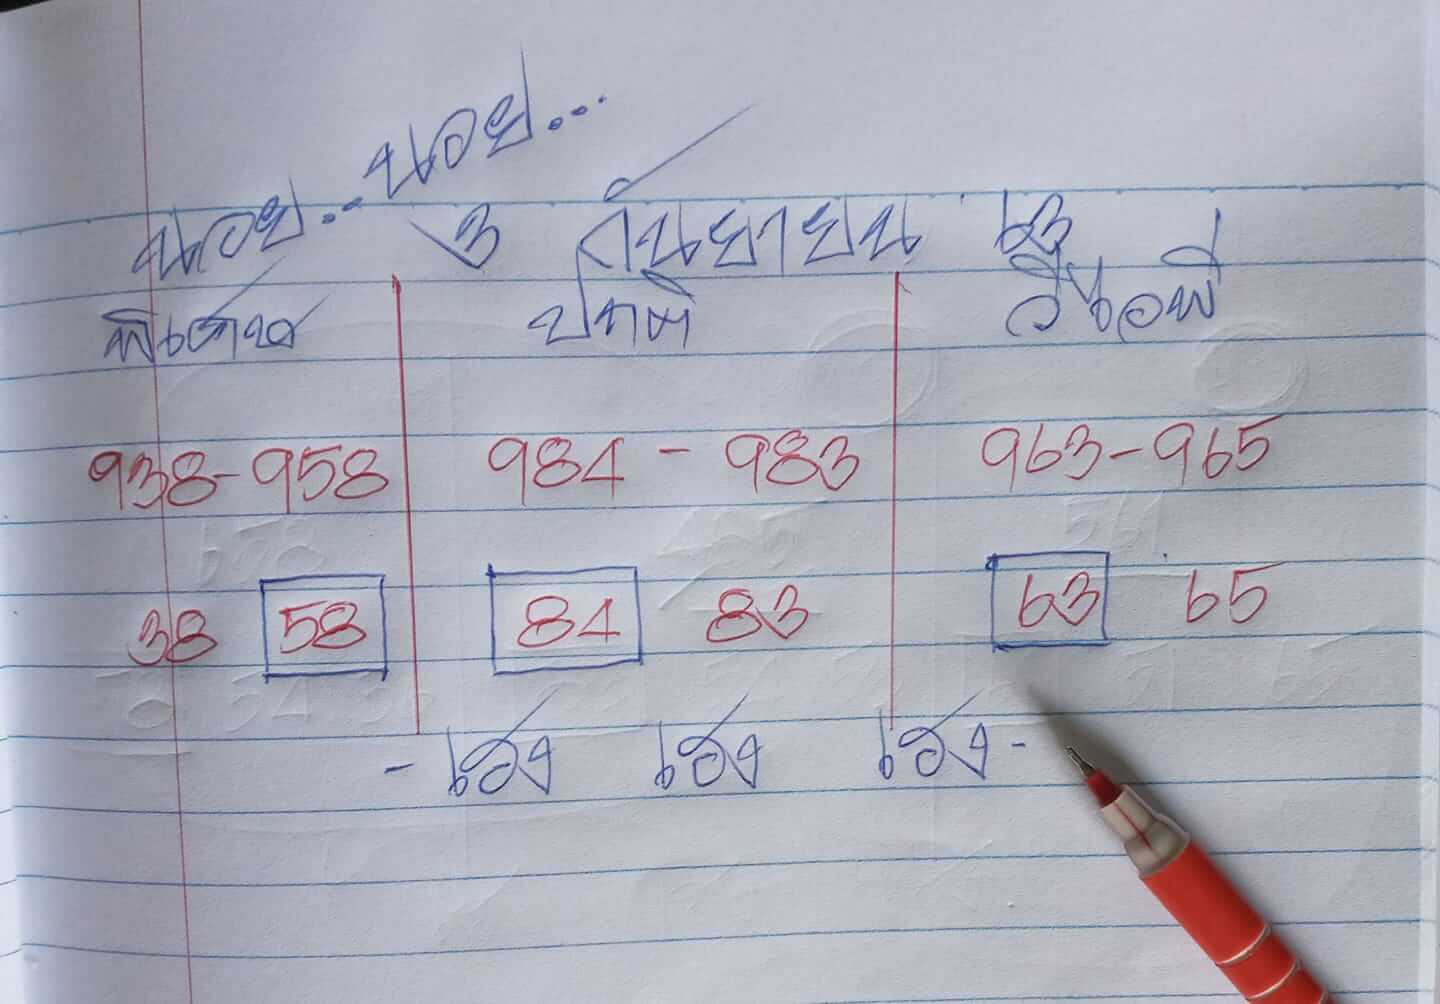 นอย...นอย...
3 กันยายน 63
พิเศษ ปกติ วีไอพี
938-958 984-983 963-965
38 58 84 83 63 65
- เฮง เฮง เฮง -